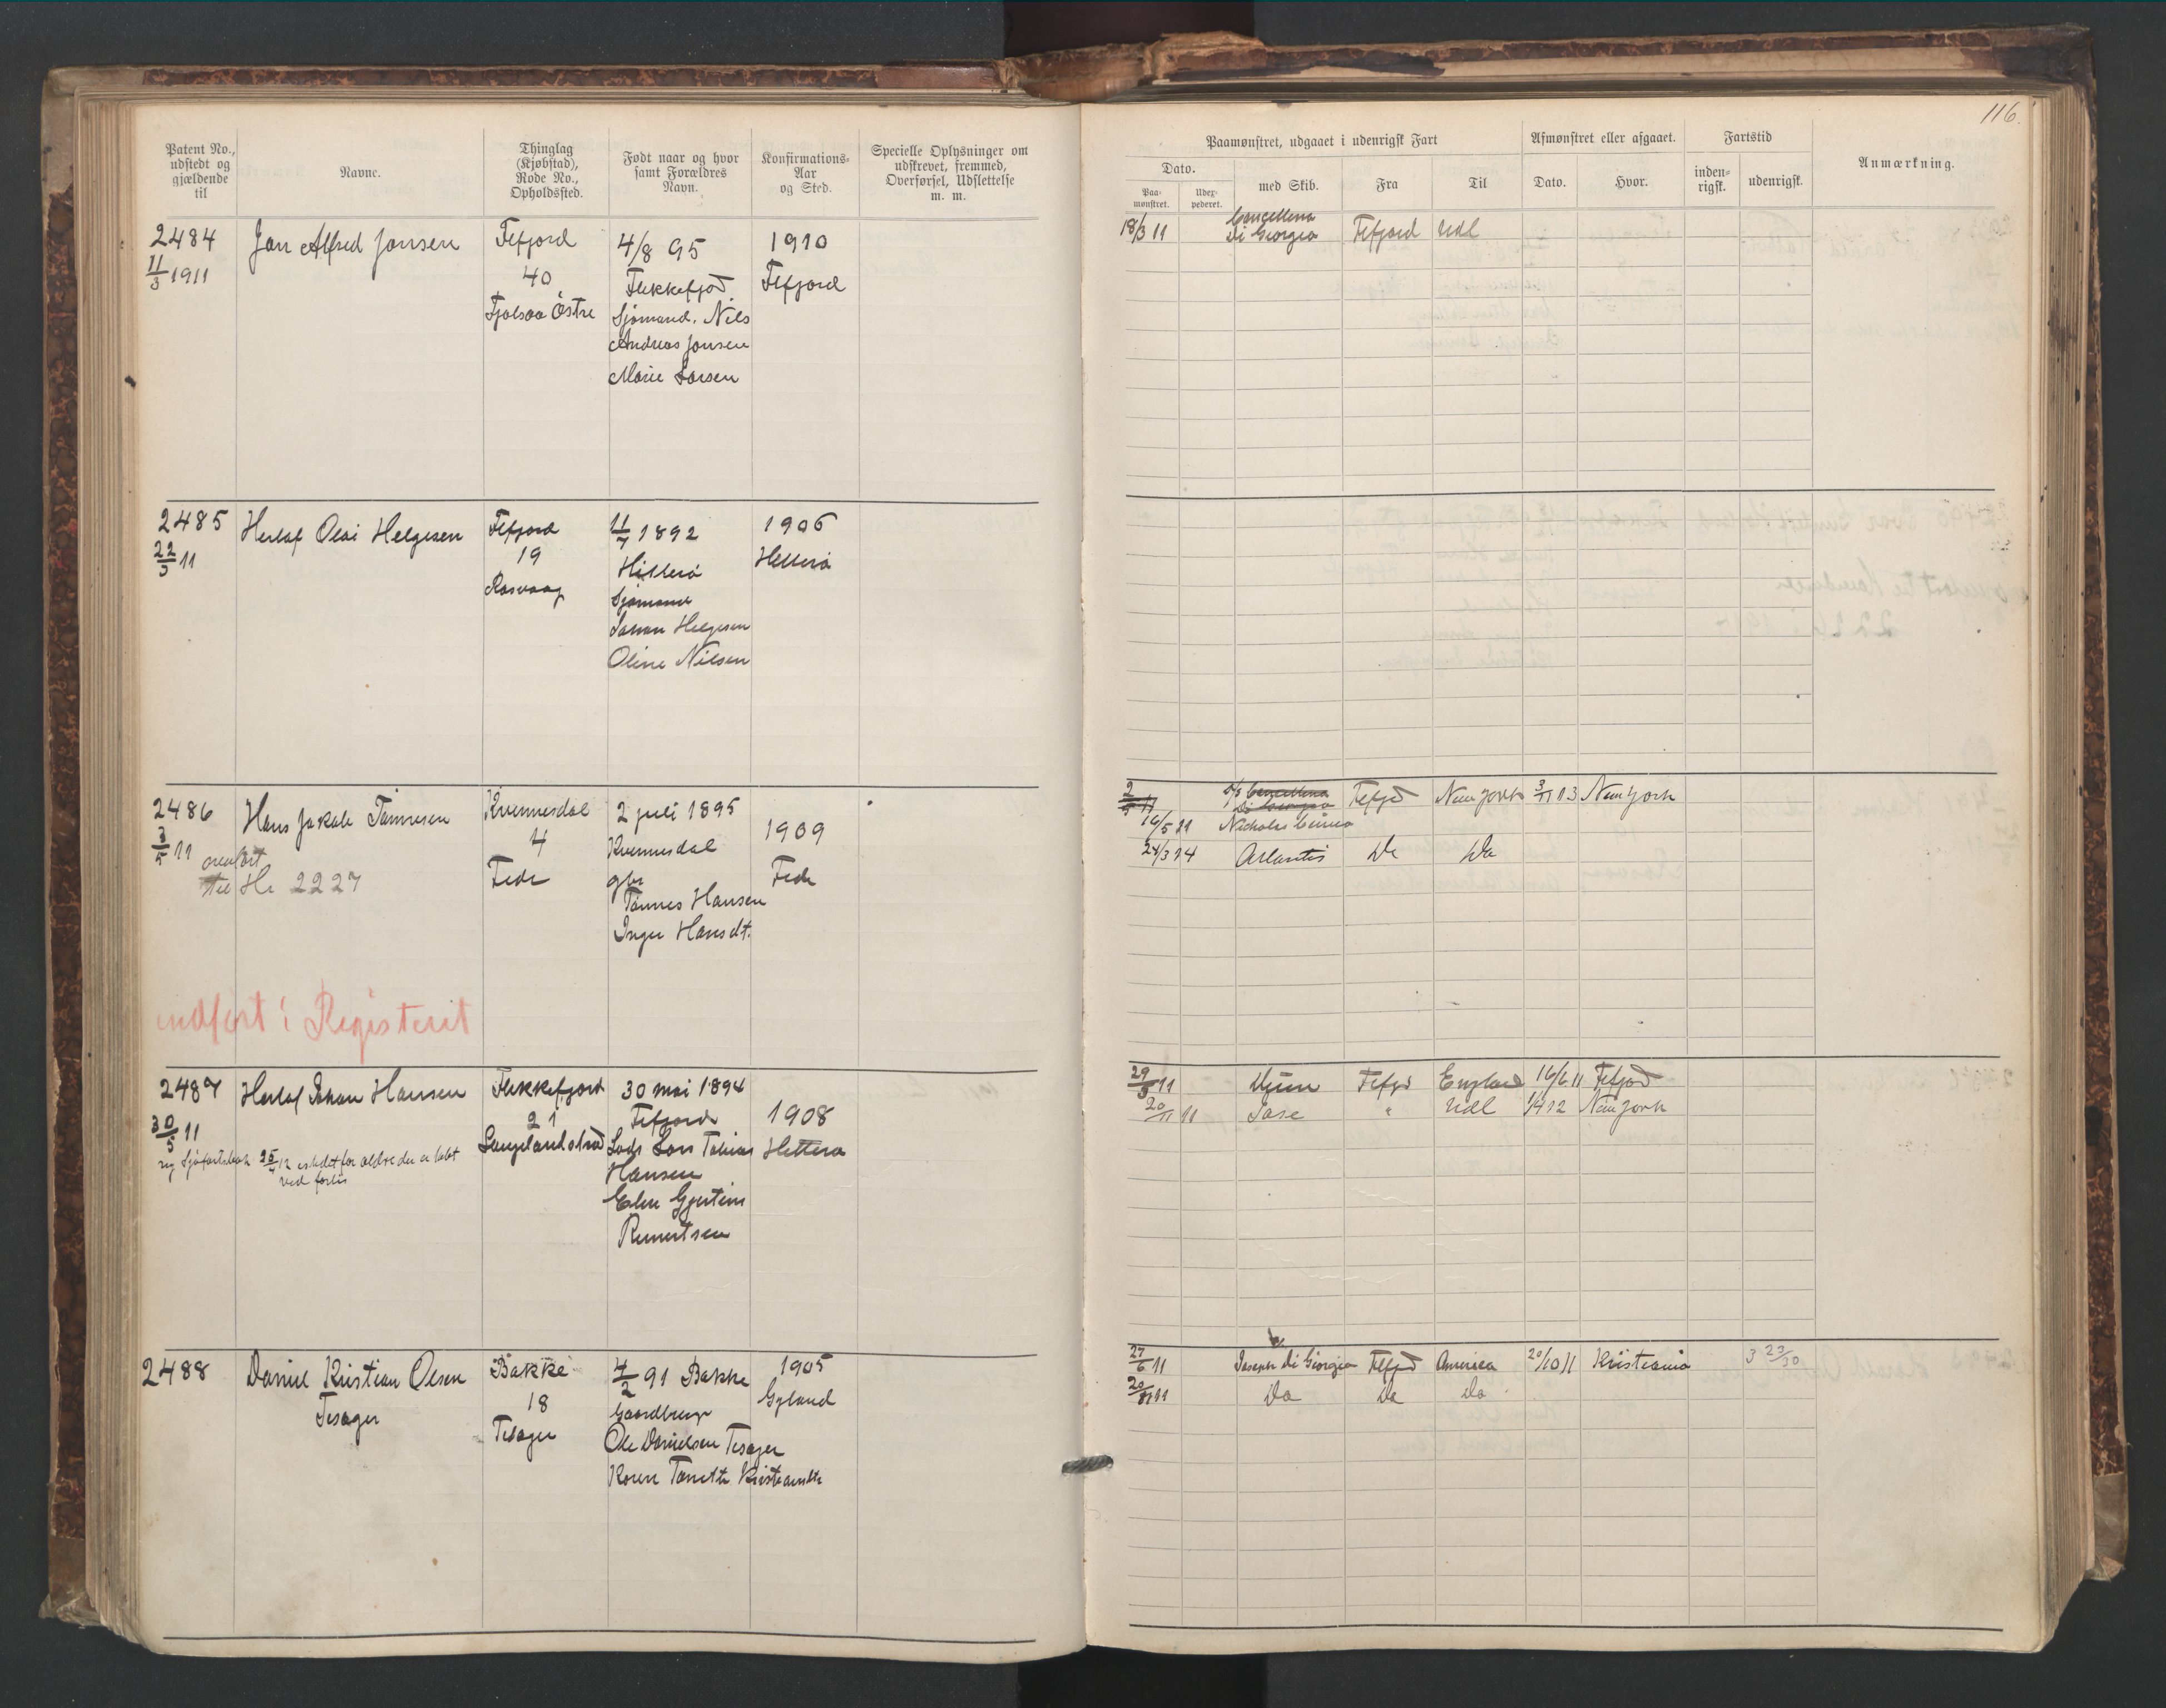 116.
Patent No., udstedt og gjældende til
Navne.
Thinglag (Kjøbstad), Rode No., Opholdssted.
Født naar og hvor samt Forældres Navn.
Konfirmations-Aar og Sted.
Specielle Oplysninger om udskrevet, fremmed, Overførsel, Udslettelse m. m.
Paamønstret, udgaaet i udenrigsk Fart
Dato.
Paa-mønstret.
med Skib.
Fra
Til
Afmønstret eller afgaaet.
Dato.
Hvor.
Fartstid
inden-rigsk.
udenrigsk.
Anmærkning.
2484
11/3 1911
Jan Alfred Jonsen
Fefjord
40
Fjolsaa Østre
4/8 95
Flekkefjod
Sjømand. Nils
Andreas Jonsen
Marie Larsen
1910
Flfjord
18/3 11
Concettina
di Georgio
Fefjord
Udl
2485
22/3 11
Herlaf Olai Helgesen
Flfjord
19
Rasvaag
11/7 1892
Hitterø
Sjømand
Johan Helgesen
Oline Nilsen
1906
Hitterø
2486
3/5 11
overført
til He 2227
Hans Jakob Tønnesen
Kvinnesdal
4
Fede
2 juli 1895
Kvinnesdal
gbr
Tønnes Hansen
Inger Hansdt.
1909
Fede
indført i Registerit
16/5 11
Nicholas Cuneo
Flfjd
New York
3/11 13
New York
24/3 14
Atlantis
Do
Do
2487
30/5 11
Herlaf Johan Hansen
ny Sjøfartsbok 25/4 12 istedetfor ældre der er tabt
ved forlis
Flekkefjord
21
Langelandstrød
30 mai 1894
Flfjord
Lods Lars Tobias
Hansen
Elen Gjertine
Reinertsen
1908
Hitterø
29/5 11
Unn
Flfjd
England
16/6 11
Flfjod
20/11 11
"
Udl
1/4 12
New York
2488
Daniel Kristian Olsen
Tesager
Bakke
18
Tesager
4/2 91 Bakke
Gaardbruger
Ole Danielsen Tesager
Karen Tonette Kristiansdtr
1905
Gyland
27/6 11
Joseph di Giorgio
Flfjd
America
20/10 11
Kristiania
3 23/30
20/11 11
Do
Do
Do